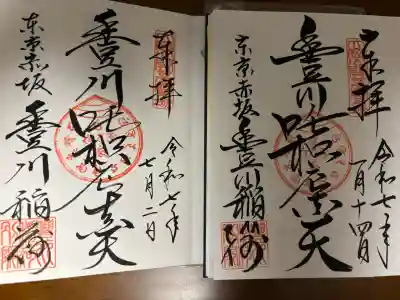 奉拝
令和七年
一月十四日
豊川吒枳尼真天
東京赤坂
豊川稲荷
奉拝
令和七年
七月二日
豊川吒枳尼真天
東京赤坂
豊川稲荷